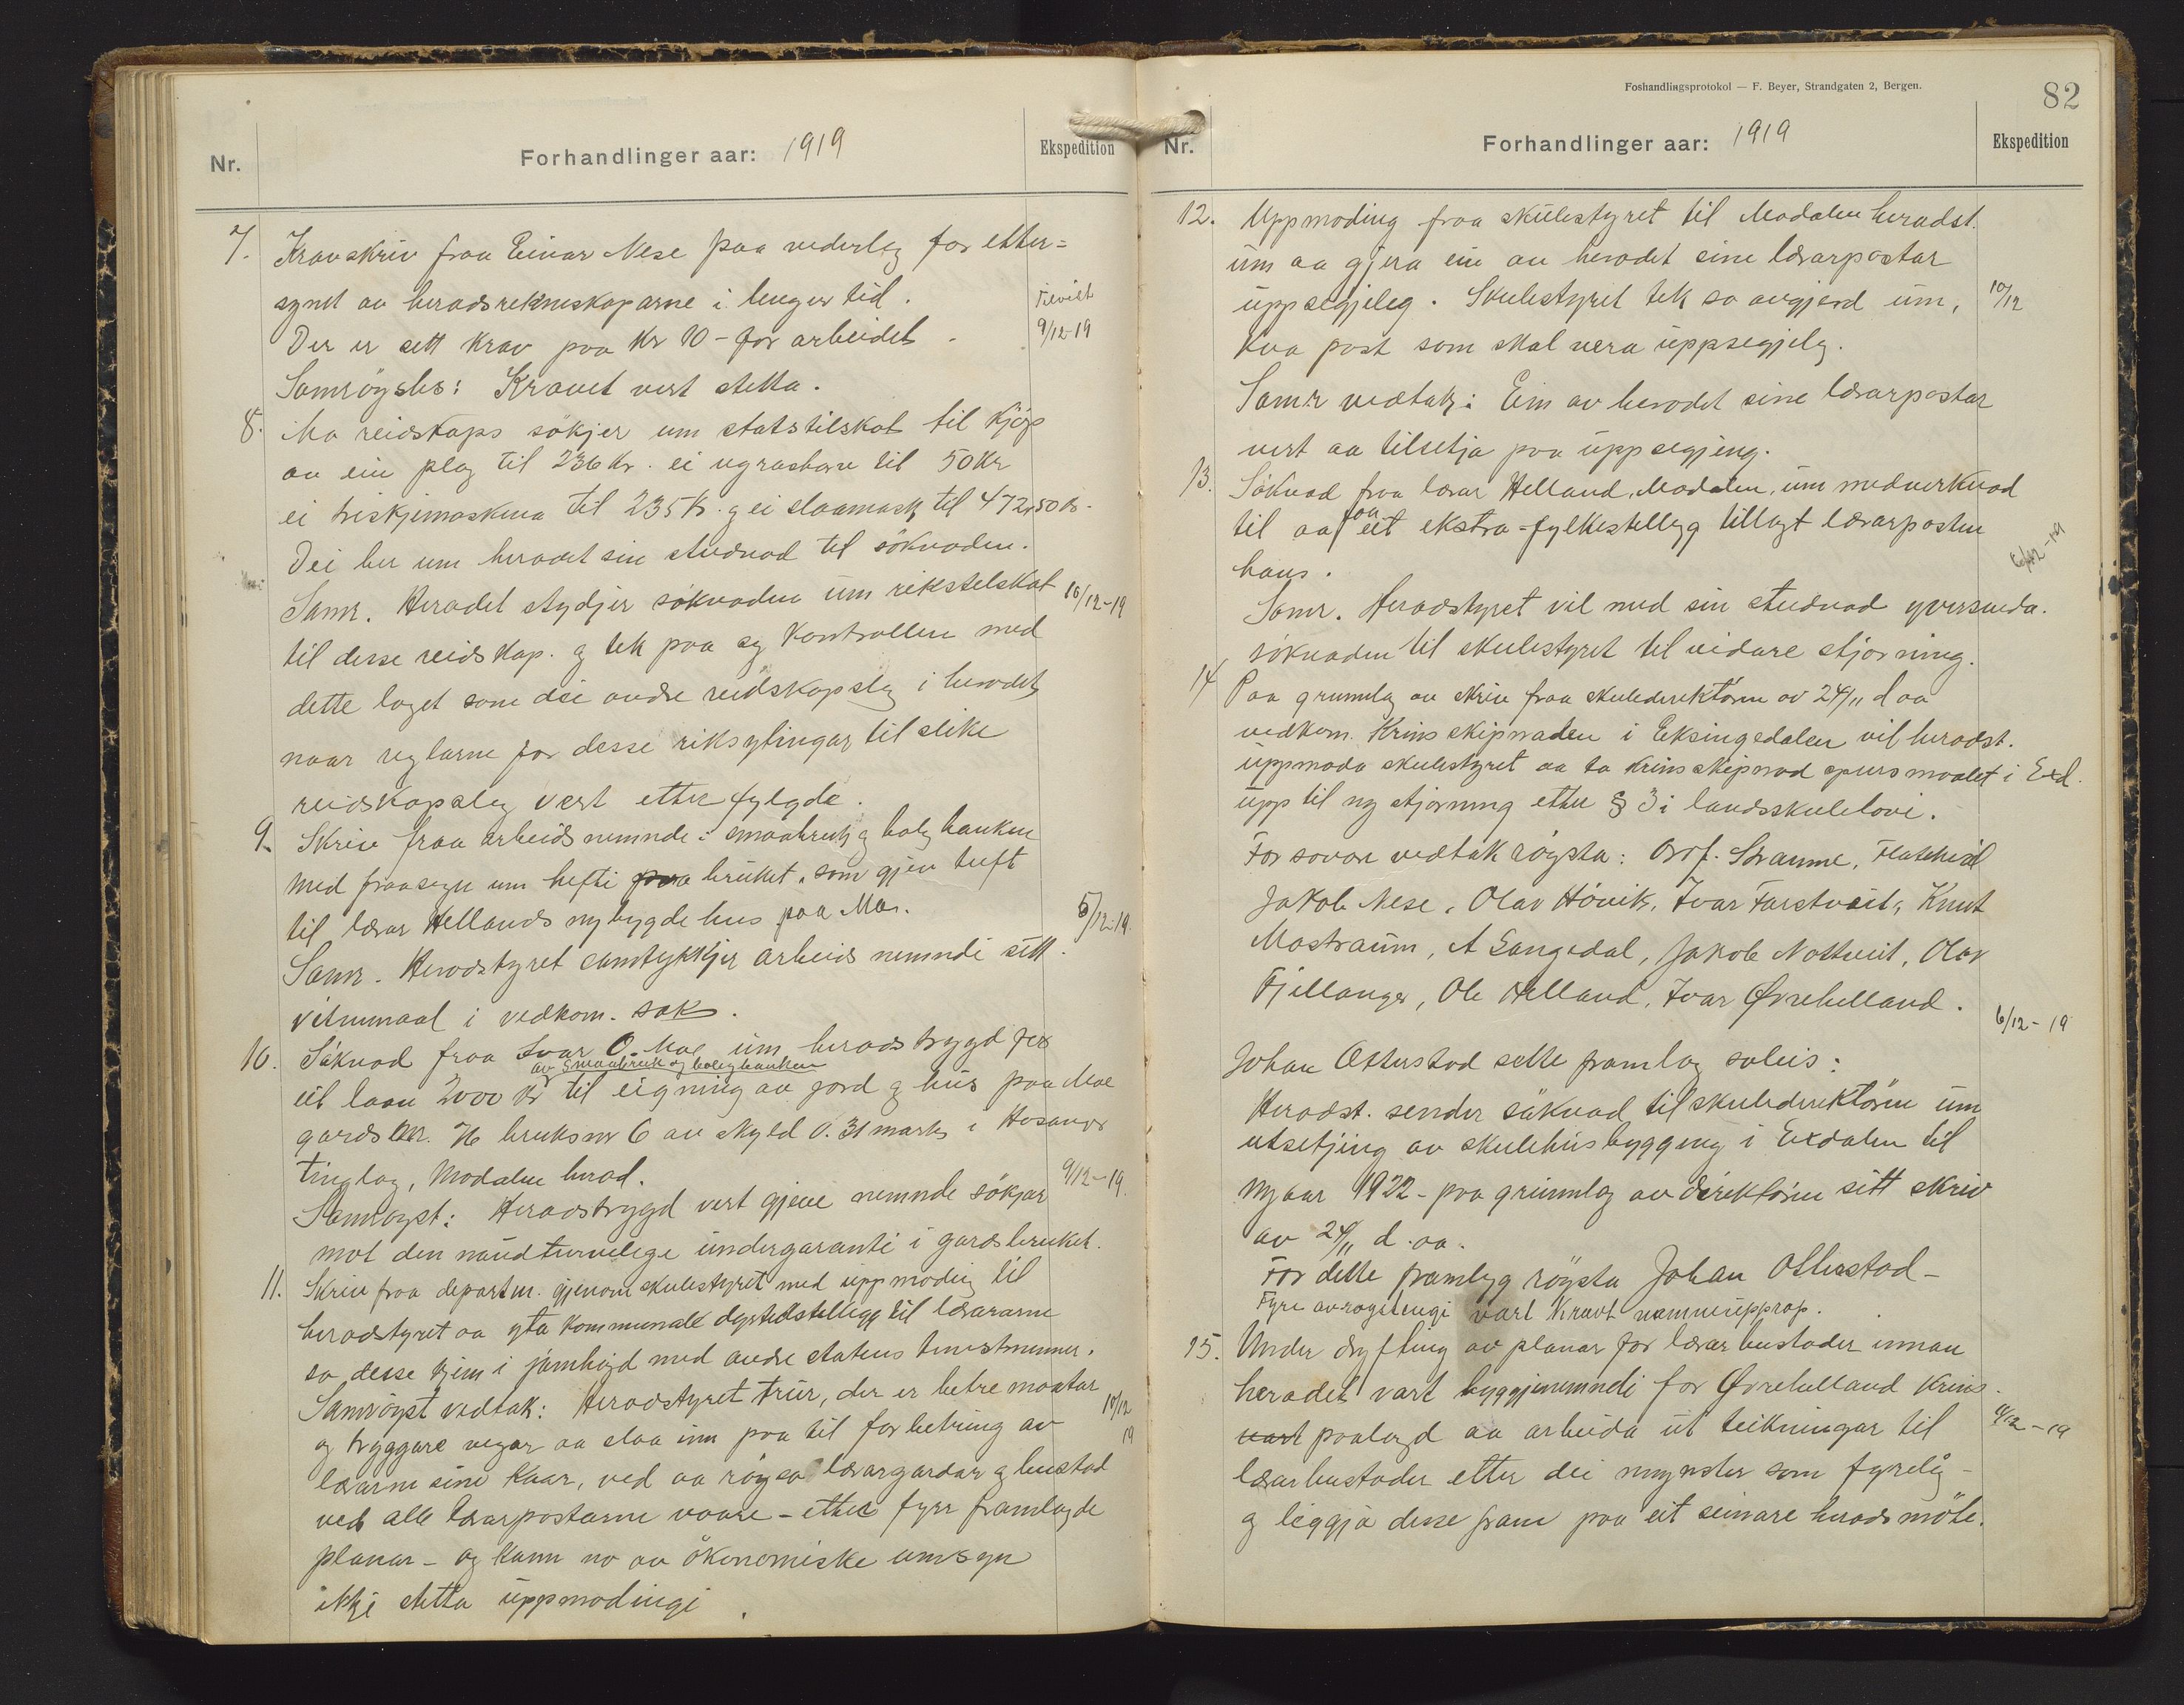 Nr.
Forhandlinger aar: 1919
Ekspedition
7. Kravskriv fraa Einar Nese paa vederlag for etter=
synet av heradsrekneskaparne i lenger tid.
Tilvist
Der er sett krav paa kr 10 - for arbeidet.
9/12-19
Samrøystes: Kravet vert stetta.
8. Mo reidskaps sökjer um statstilskot til kjöp
av ein plog til 236 kr. ei ugrasharv til 50 kr
ei treskjemaskina til 235 kr. g ei slaamask til 472,50 kr.
Dei ber um heradet sin studnad til söknaden.
Samr. Heradet stydjer söknaden um rikstelskot
10/12-19
til desse reidskap. g tek paa seg kontrollen med
dette laget som dei andre reidskapslag i heradet
naar reglarne for desse riksytingar til slike
reidskapslag vert etterfylgde.
9. Skriv fraa arbeidsnemnde i smaabruk g boligbanken
med fraasegn um hefti paa bruket, som gjev tuft
til lærar Hellands nybygde hus paa Mo.
5/12-19.
Samr. Heradstyret samtykkjer arbeidsnemndi sitt
vitnemaal i vedkom. sak.
10. Söknad fraa Ivar O. Moe um heradstrygd for
av Smaabruk og boligbanken
eit laan 2000 kr til eigning av jord g hus paa Moe
gards nr. 76 bruksnr 6 av skyld 0.31 mark i Hosanger
tinglag, Modalen herad.
9/12-19.
Samrøyst: Heradstrygd vert gjeve nemnde sökjar
mot den naudturvelege undergaranti i gardsbruket.
11. Skriv fraa departm. gjenom skulestyret med uppmoding til
heradstyret aa yta kommunalt dyrtidstillegg til lærarane
so desse kjem i jamhögd med andre statens tenestmenner.
Samröyst vedtak: Heradstyret trur, der er betre maatar
10/12
19
og tryggare vegar aa slaa inn paa til forbetring av
lærarne sine kaar, ved aa röysa lærargardar g bustad
ved alle lærarpostarne vaare - etter fyrr framlagde
planar - og kann no av ökonomiske umsyn
ikkje stetta uppmodingi.
Foshandlingsprotokol — F. Beyer, Strandgaten 2, Bergen.
82
Nr.
Forhandlinger aar: 1919
Ekspedition
12. Uppmoding fraa skulestyret til Modalen heradst.
um aa gjera ein av heradet sine lærarpostar
uppsegjeleg. Skulestyret tek so avgjerd um,
10/12
kva post som skal vera uppsegjeleg.
Samr vedtak: Ein av heradet sine lærarpostar
vert aa tilsetja paa uppsegjing.
13. Söknad fraa lærar Helland, Modalen, um medverknad
til aa faa eit ekstra-fylkestillegg tillagt lærarposten
hans.
6/12-19
Samr. Heradstyret vil med sin studnad yversenda
söknaden til skulestyret til vidare stjorning.
14 Paa grunnlag av skriv fraa skuledirektören av 24/11 d aa
vedkom. Krins skipnaden i Eksingedalen vil heradst.
uppmoda skulestyret aa ta krinsskipnad spursmaalet i Exd.
upp til ny stjorning etter § 3 i landsskulelovi.
For sovore vedtak røysta: Brif. Straume, Flatekvål
Jakob Nese, Olav Hövik, Ivar Farstveit, Knut
Mostraum, A Langedal, Jakob Nottveit, Olav
Fjellanger, Ole Helland, Ivar Øvrehelland.
6/12-19
Johan Otterstad sette framlag soleis:
Heradst. sender söknad til skuledirektören um
utsetjing av skulehusbygging i Exdalen til
nyaar 1922 - paa grunnlag av direktören sitt skriv
av 24/11 d. aa.
For dette framlegg röysta Johan Otterstad -
Fyre avröystingi vart kravt namneupprop.
15. Under dryfting av planar for lærarbustader innan
heradet vart byggjenemndi for Øvrehelland krins
vart paalagd aa arbeida ut teikningar til
6/12-19
lærarbustader etter dei mynster som fyrelig -
g leggja desse fram paa eit seinare heradsmöte.